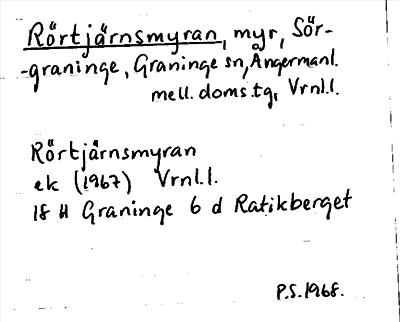 Rörtjärnsmyran, myr, Sör-
-graninge, Graninge sn, Ångermanl.
mell. doms.tg, Vrnl.l.
Rörtjärnsmyran
ek (1967) Vrnl.l.
18 H Graninge 6 d Ratikberget
P.S. 1968.